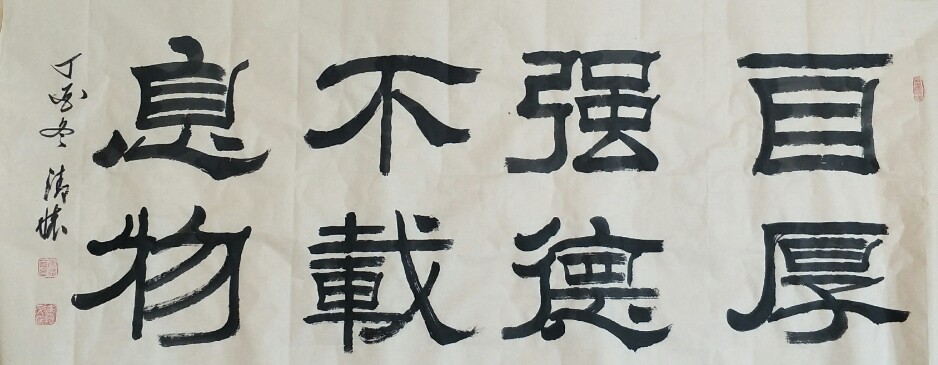 自强不息
厚德載物
丁酉冬